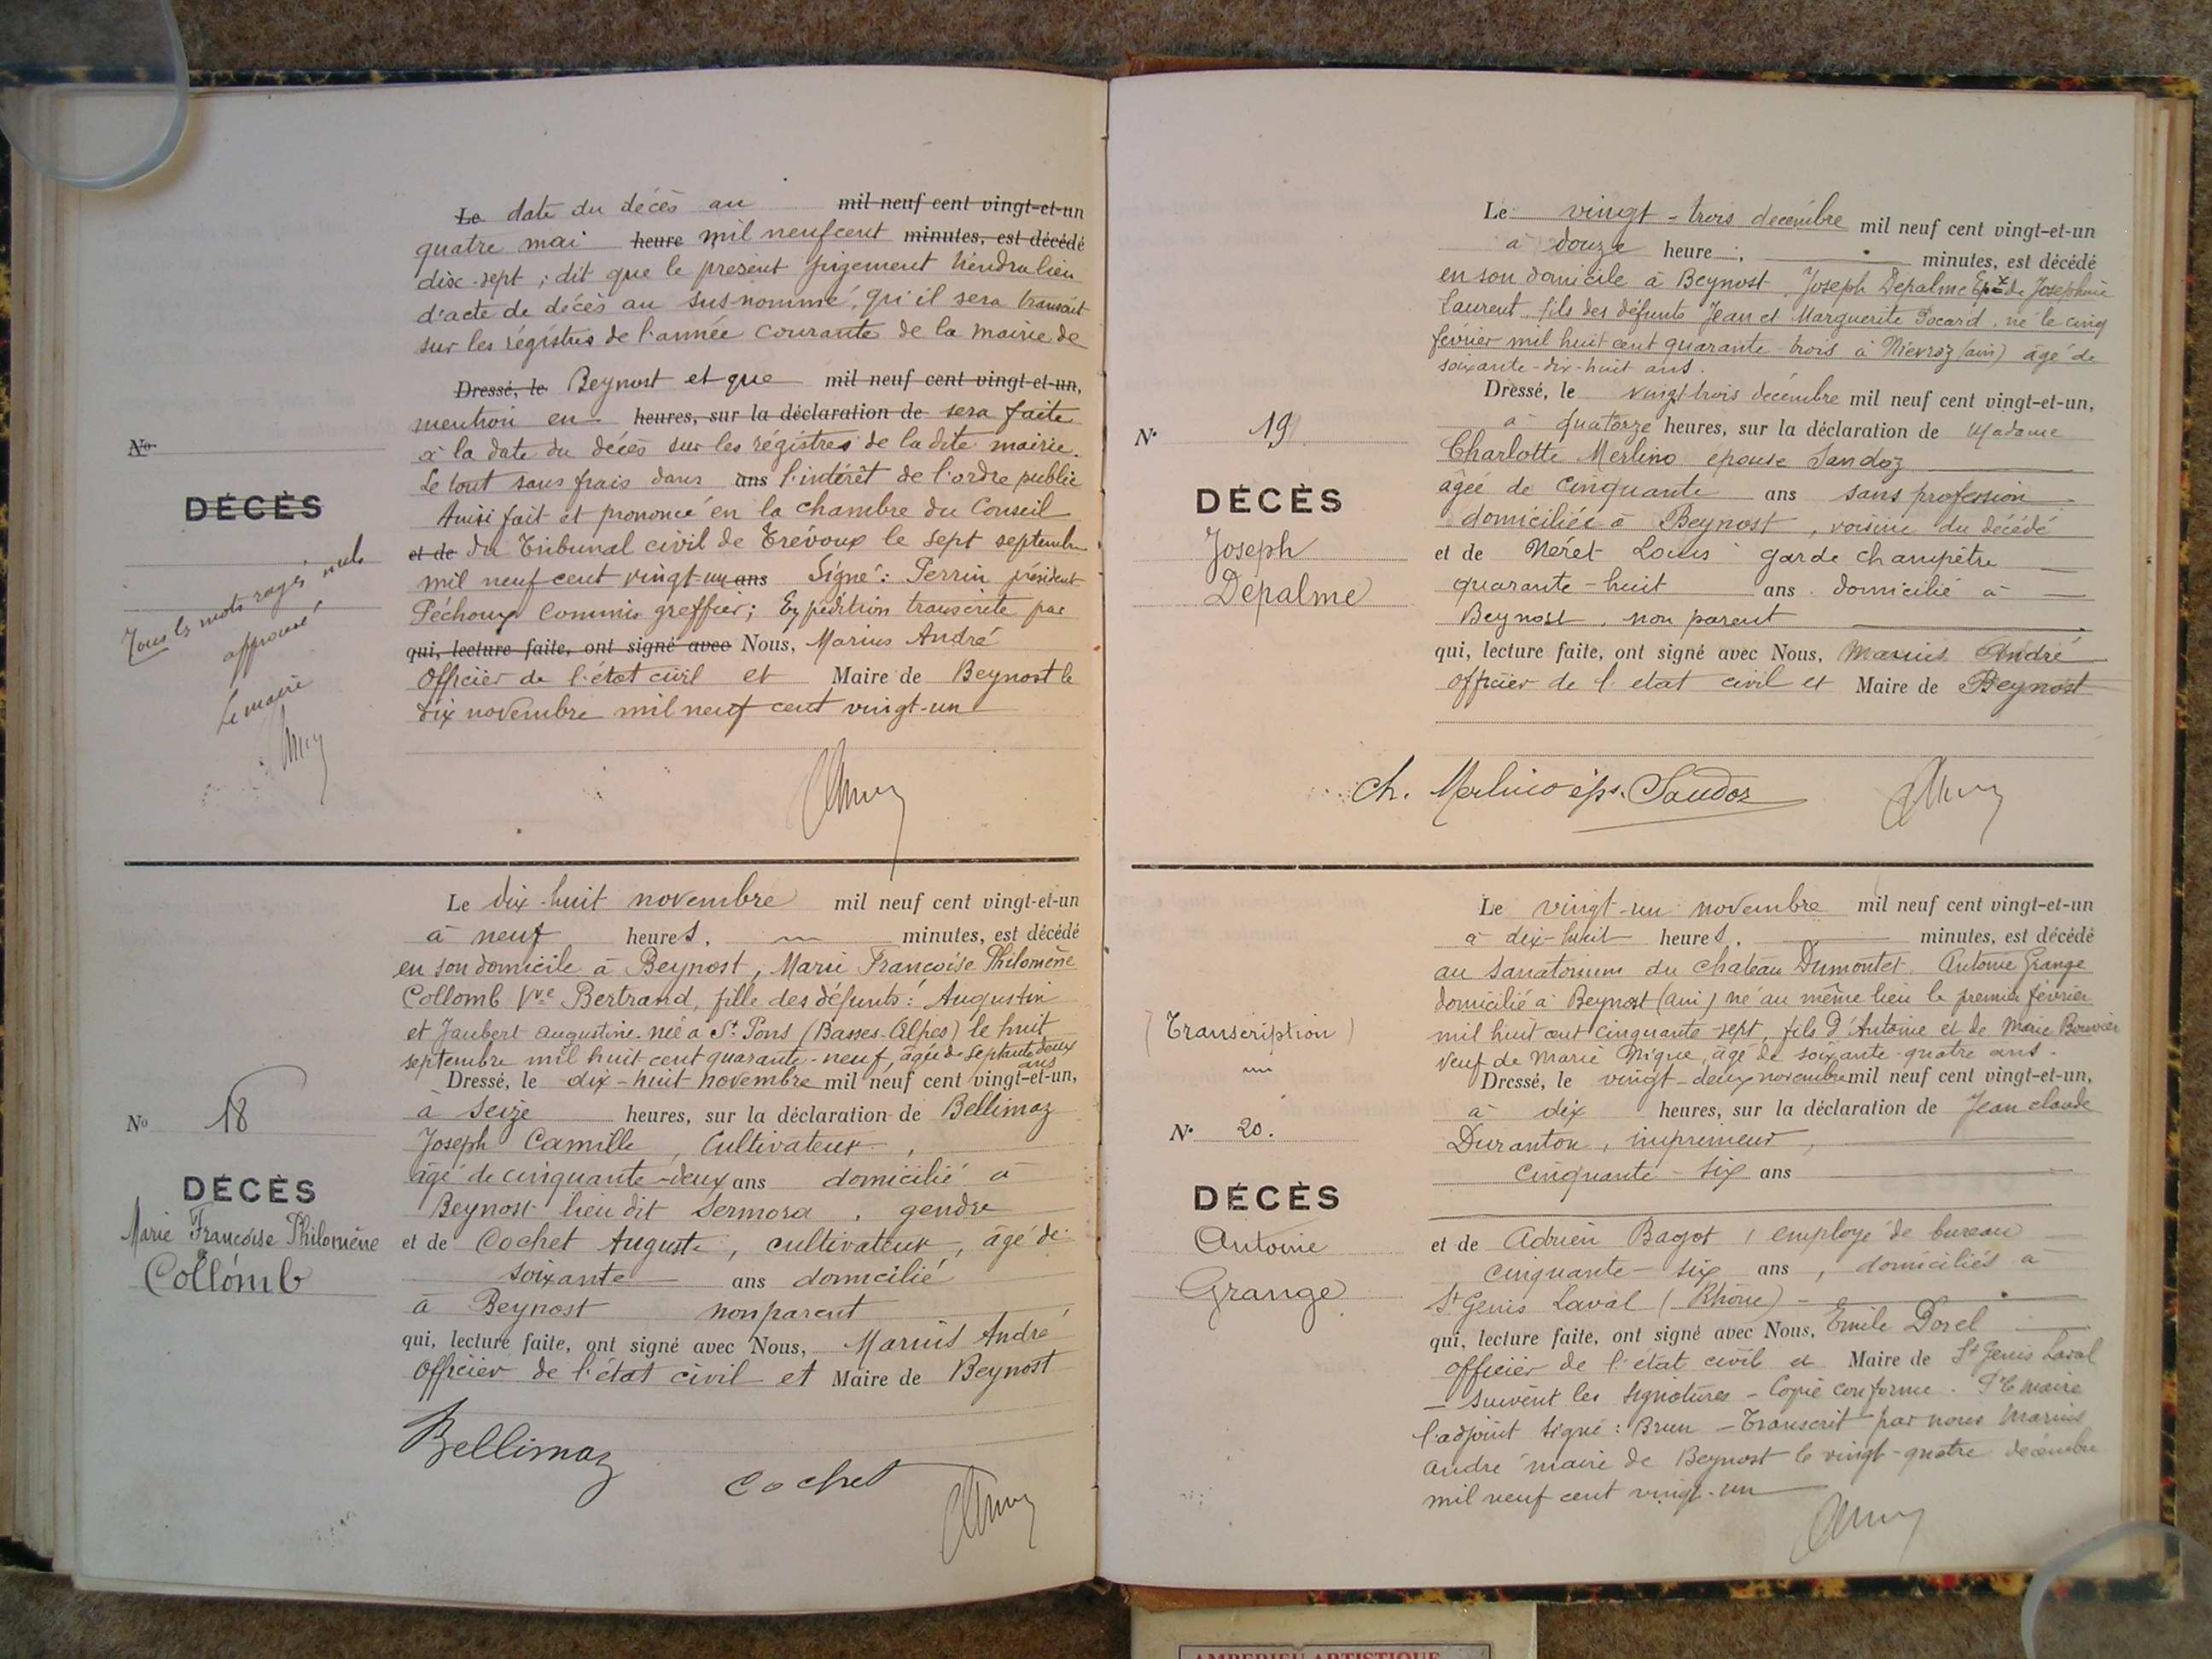 Le date du décès au mil neuf cent vingt-et-un
quatre mai heure mil neuf cent minutes, est décédé
dix-sept ; dit que le présent jugement tiendra lieu
d'acte de décès au sus-nommé, qu'il sera transcrit
sur les régistres de l'année courante de la mairie de
Dressé, le Beynost et que mil neuf cent vingt-et-un,
mention en heures, sur la déclaration de sera faite
No
à la date du décès sur les régistres de la dite mairie.
Le tout sans frais dans ans l'intérêt de l'ordre public
DÉCÈS
Ainsi fait et prononcé en la chambre du Conseil
et de du Tribunal civil de Trévoux le sept septembre
mil neuf cent vingt-un ans Signé : Perrin président
Péchoux commis greffier ; Expédition transcrite par
qui, lecture faite, ont signé avec Nous, Marius André
Officier de l'état civil et Maire de Beynost le
dix novembre mil neuf cent vingt-un
Tous les mots rayés nuls
approuvé
Le maire
Le dix-huit novembre mil neuf cent vingt-et-un
à neuf heures, minutes, est décédé
en son domicile à Beynost, Marie Françoise Philomène
Collomb Vve Bertrand, fille des défunts : Augustin
et Jaubert Augustine. née à St Pons (Basses-Alpes) le huit
septembre mil huit cent quarante-neuf, âgée de septante deux
ans
Dressé, le dix-huit novembre mil neuf cent vingt-et-un,
No 18
à seize heures, sur la déclaration de Bellimaz
Joseph Camille, Cultivateur,
DÉCÈS
Marie Françoise Philomène
Collomb
âgé de cinquante-deux ans domicilié à
Beynost lieu dit Sermora, gendre
et de Cochet Auguste, cultivateur, âgé de
soixante ans domicilié
à Beynost non parent
qui, lecture faite, ont signé avec Nous, Marius André
Officier de l'état civil et Maire de Beynost
Bellimaz
Cochet
Le vingt-trois décembre mil neuf cent vingt-et-un
à douze heure, minutes, est décédé
en son domicile à Beynost, Joseph Depalme Epx de Josephine
Laurent, fils des défunts Jean et Marguerite Pocard, né le cinq
février mil huit cent quarante-trois à Niévroz (ain) âgé de
soixante-dix-huit ans.
Dressé, le vingt trois décembre mil neuf cent vingt-et-un,
N° 19
à quatorze heures, sur la déclaration de Madame
Charlotte Merlino épouse Sandoz
DÉCÈS
Joseph
Depalme
âgée de cinquante ans sans profession
domiciliée à Beynost, voisine du décédé
et de Néret Louis garde champêtre
quarante-huit ans domicilié à
Beynost, non parent
qui, lecture faite, ont signé avec Nous, Marius André
Officier de l'état civil et Maire de Beynost
Ch. Merlino éps. Sandoz
Le vingt-un novembre mil neuf cent vingt-et-un
à dix-huit heures, minutes, est décédé
au Sanatorium du chateau Dumontet, Antoine Grange
domicilié à Beynost (ain) né au même lieu le premier février
(Transcription)
mil huit cent cinquante-sept, fils d'Antoine et de Marie Bouvier
veuf de Marie Migue, âgé de soixante-quatre ans.
Dressé, le vingt-deux novembre mil neuf cent vingt-et-un,
N° 20.
à dix heures, sur la déclaration de Jean claude
Duranton, imprimeur,
DÉCÈS
Antoine
Grange
cinquante-six ans
et de Adrien Bagot, employé de bureau
cinquante-six ans, domiciliés à
St Genis Laval (Rhône)
qui, lecture faite, ont signé avec Nous, Emile Dorel
Officier de l'état civil et Maire de St Genis Laval
– Suivent les signatures – Copie conforme. Pr le maire
l'adjoint signé : Brun – Transcrit par nous Marius
André maire de Beynost le vingt-quatre décembre
mil neuf cent vingt-un
AMBERIEU ARTISTIQUE